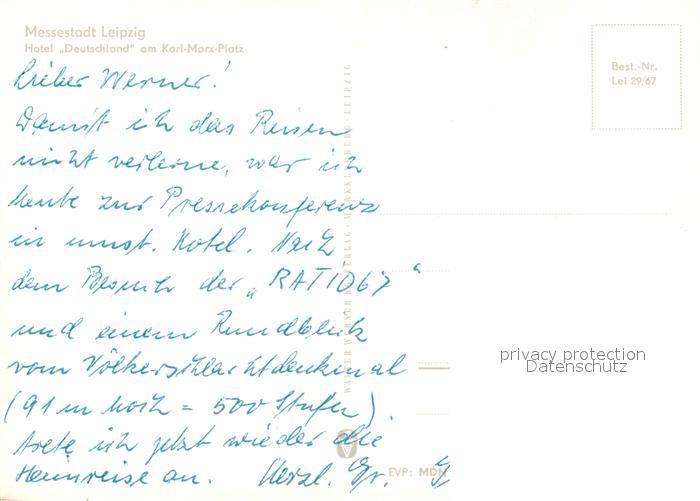 Messestadt Leipzig
Hotel „Deutschland" am Karl-Marx-Platz
Best.-Nr.
Lei 29/67
Lieber Werner!
Damit ich das Reisen
nicht verlerne, war ich
heute zur Pressekonferenz
in umst. Hotel. Nach
dem Besuch der „RATIO67"
und einem Rundblick
vom Völkerschlachtdenkmal
(91 m hoch = 500 Stufen).
trete ich jetzt wieder die
Heimreise an. Herzl. Gr.
privacy protection
Datenschutz
EVP: MDN